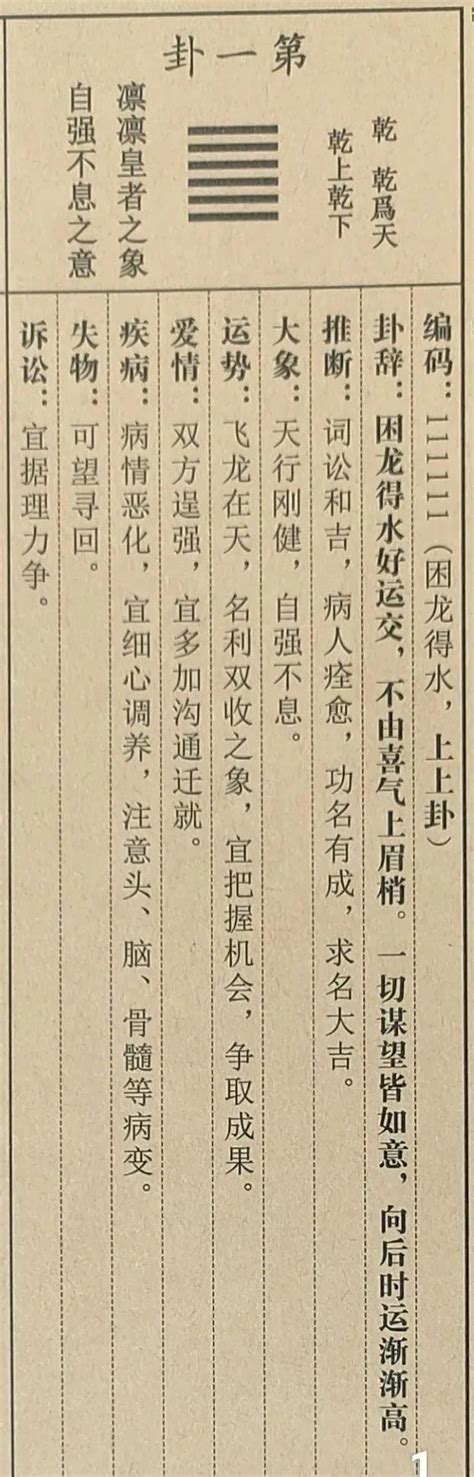 第一卦
乾 乾爲天
乾上乾下
凛凛皇者之象
自强不息之意
编码：111111（困龙得水，上上卦）
卦辞：困龙得水好运交，不由喜气上眉梢。一切谋望皆如意，向后时运渐渐高。
推断：词讼和吉，病人痊愈，功名有成，求名大吉。
大象：天行刚健，自强不息。
运势：飞龙在天，名利双收之象，宜把握机会，争取成果。
爱情：双方逞强，宜多加沟通迁就。
疾病：病情恶化，宜细心调养，注意头、脑、骨髓等病变。
失物：可望寻回。
诉讼：宜据理力争。
1